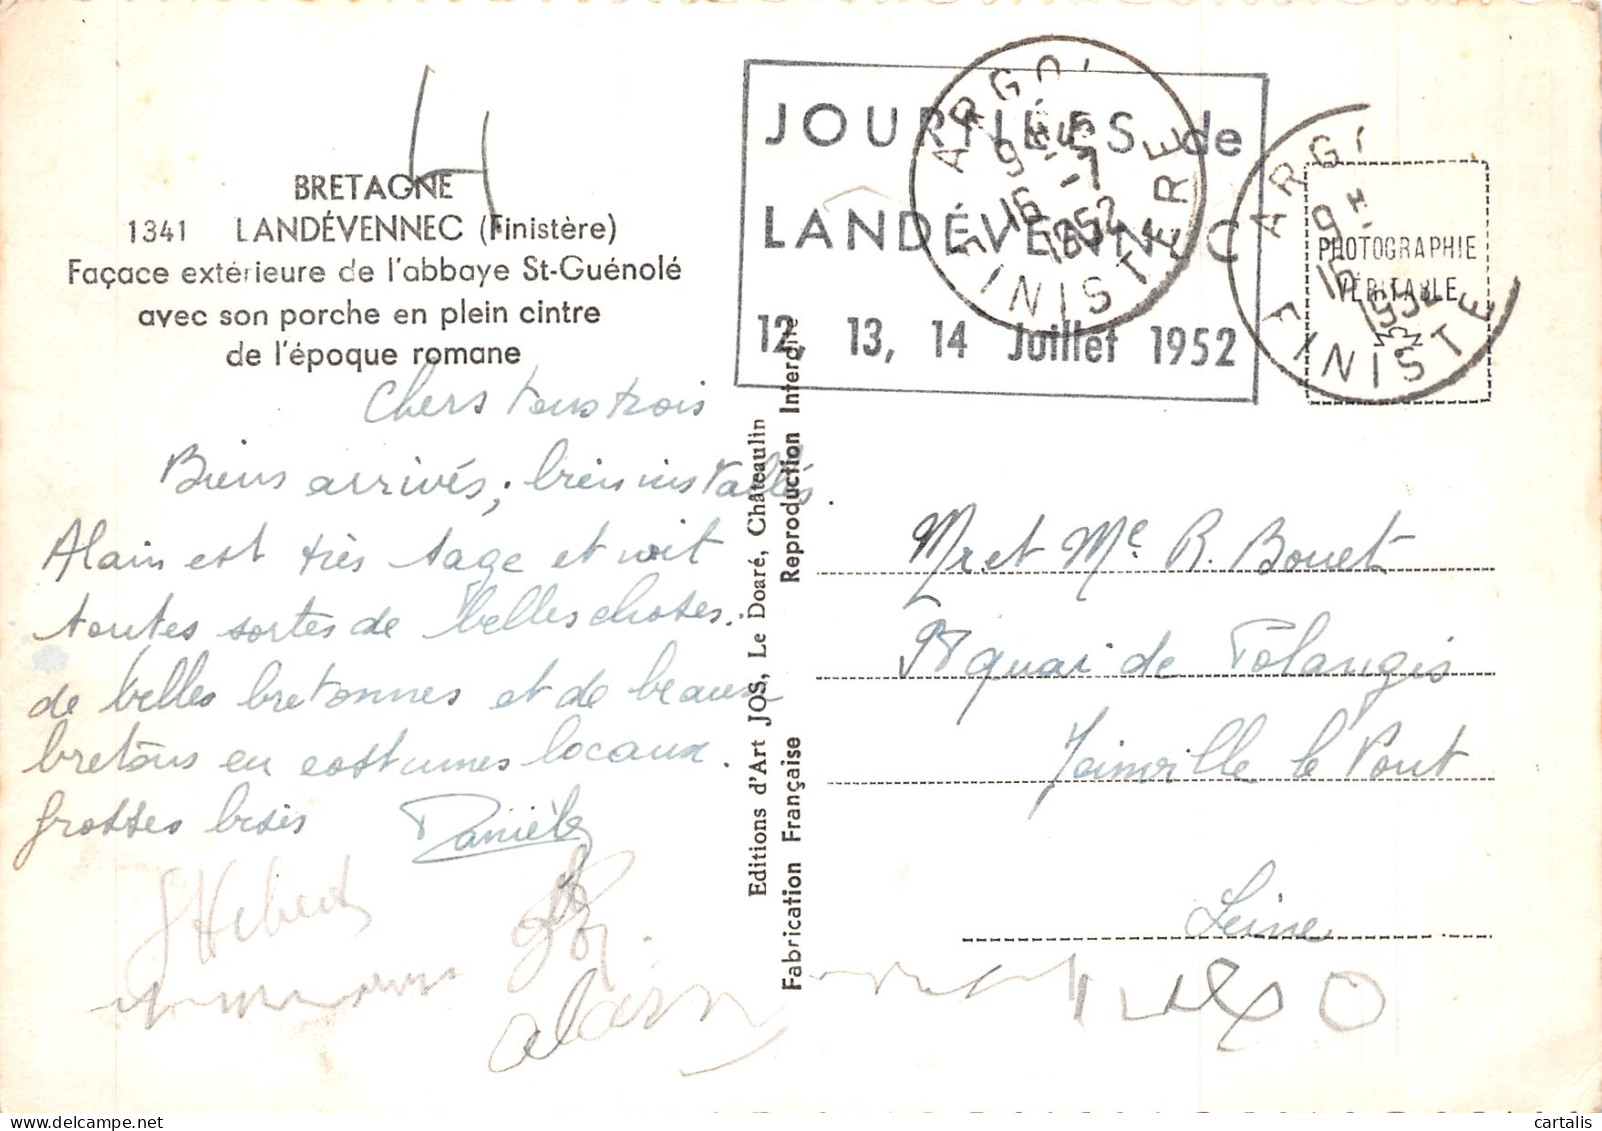 BRETAGNE
1341 LANDÉVENNEC (Finistère)
Façace extérieure de l'abbaye St-Guénolé
avec son porche en plein cintre
de l'époque romane
Chers tous trois
Biens arrivés, bien installés.
Alain est très sage et voit
toutes sortes de belles choses.
de belles bretonnes et de beaux
bretons en costumes locaux.
grosses bises Danièle
Hebert
alain
Editions d'Art JOS, Le Doaré, Châteaulin
Fabrication Française Reproduction Interdite
JOURNÉES de
LANDÉVENNEC
12, 13, 14 Juillet 1952
ARGO
9H 15
16 -7
1952
FINISTERE
ARG
9H
16
1952
FINISTE
PHOTOGRAPHIE
VÉRITABLE
Mr et Me R. Bouet
quai de Polangis
Joinville le Pont
Seine
cartalis